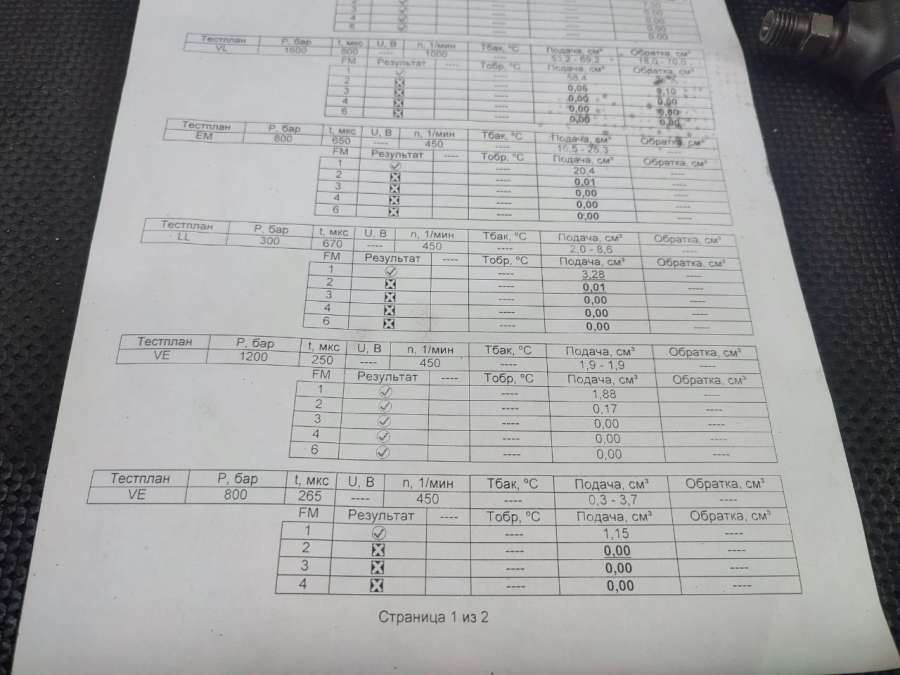 4 ---- 0,00 ----
6 ---- 0,00
Тестплан Р, бар t, мкс U, В n, 1/мин Тбак, °С Подача, см³ Обратка, см³
VL 1600 800 ---- 1000 ----
FM Результат ---- Тобр, °С Подача, см³ Обратка, см³
1 ---- 58,4
2 ---- 0,06 0,10
3 ---- 0,00 0,00
4 ---- 0,00 0,00
6 ---- 0,00 0,00
Тестплан Р, бар t, мкс U, В n, 1/мин Тбак, °С Подача, см³ Обратка, см³
EM 800 650 ---- 450 ---- ----
FM Результат ---- Тобр, °С Подача, см³ Обратка, см³
1 ---- 20,4 ----
2 ---- 0,01 ----
3 ---- 0,00 ----
4 ---- 0,00 ----
6 ---- 0,00 ----
Тестплан Р, бар t, мкс U, В n, 1/мин Тбак, °С Подача, см³ Обратка, см³
LL 300 670 ---- 450 ---- 2,0 - 8,6 ----
FM Результат ---- Тобр, °С Подача, см³ Обратка, см³
1 ---- 3,28 ----
2 ---- 0,01 ----
3 ---- 0,00 ----
4 ---- 0,00 ----
6 ---- 0,00 ----
Тестплан Р, бар t, мкс U, В n, 1/мин Тбак, °С Подача, см³ Обратка, см³
VE 1200 250 ---- 450 ---- 1,9 - 1,9 ----
FM Результат ---- Тобр, °С Подача, см³ Обратка, см³
1 ---- 1,88 ----
2 ---- 0,17 ----
3 ---- 0,00 ----
4 ---- 0,00 ----
6 ---- 0,00 ----
Тестплан Р, бар t, мкс U, В n, 1/мин Тбак, °С Подача, см³ Обратка, см³
VE 800 265 ---- 450 ---- 0,3 - 3,7 ----
FM Результат ---- Тобр, °С Подача, см³ Обратка, см³
1 ---- 1,15 ----
2 ---- 0,00 ----
3 ---- 0,00 ----
4 ---- 0,00 ----
Страница 1 из 2